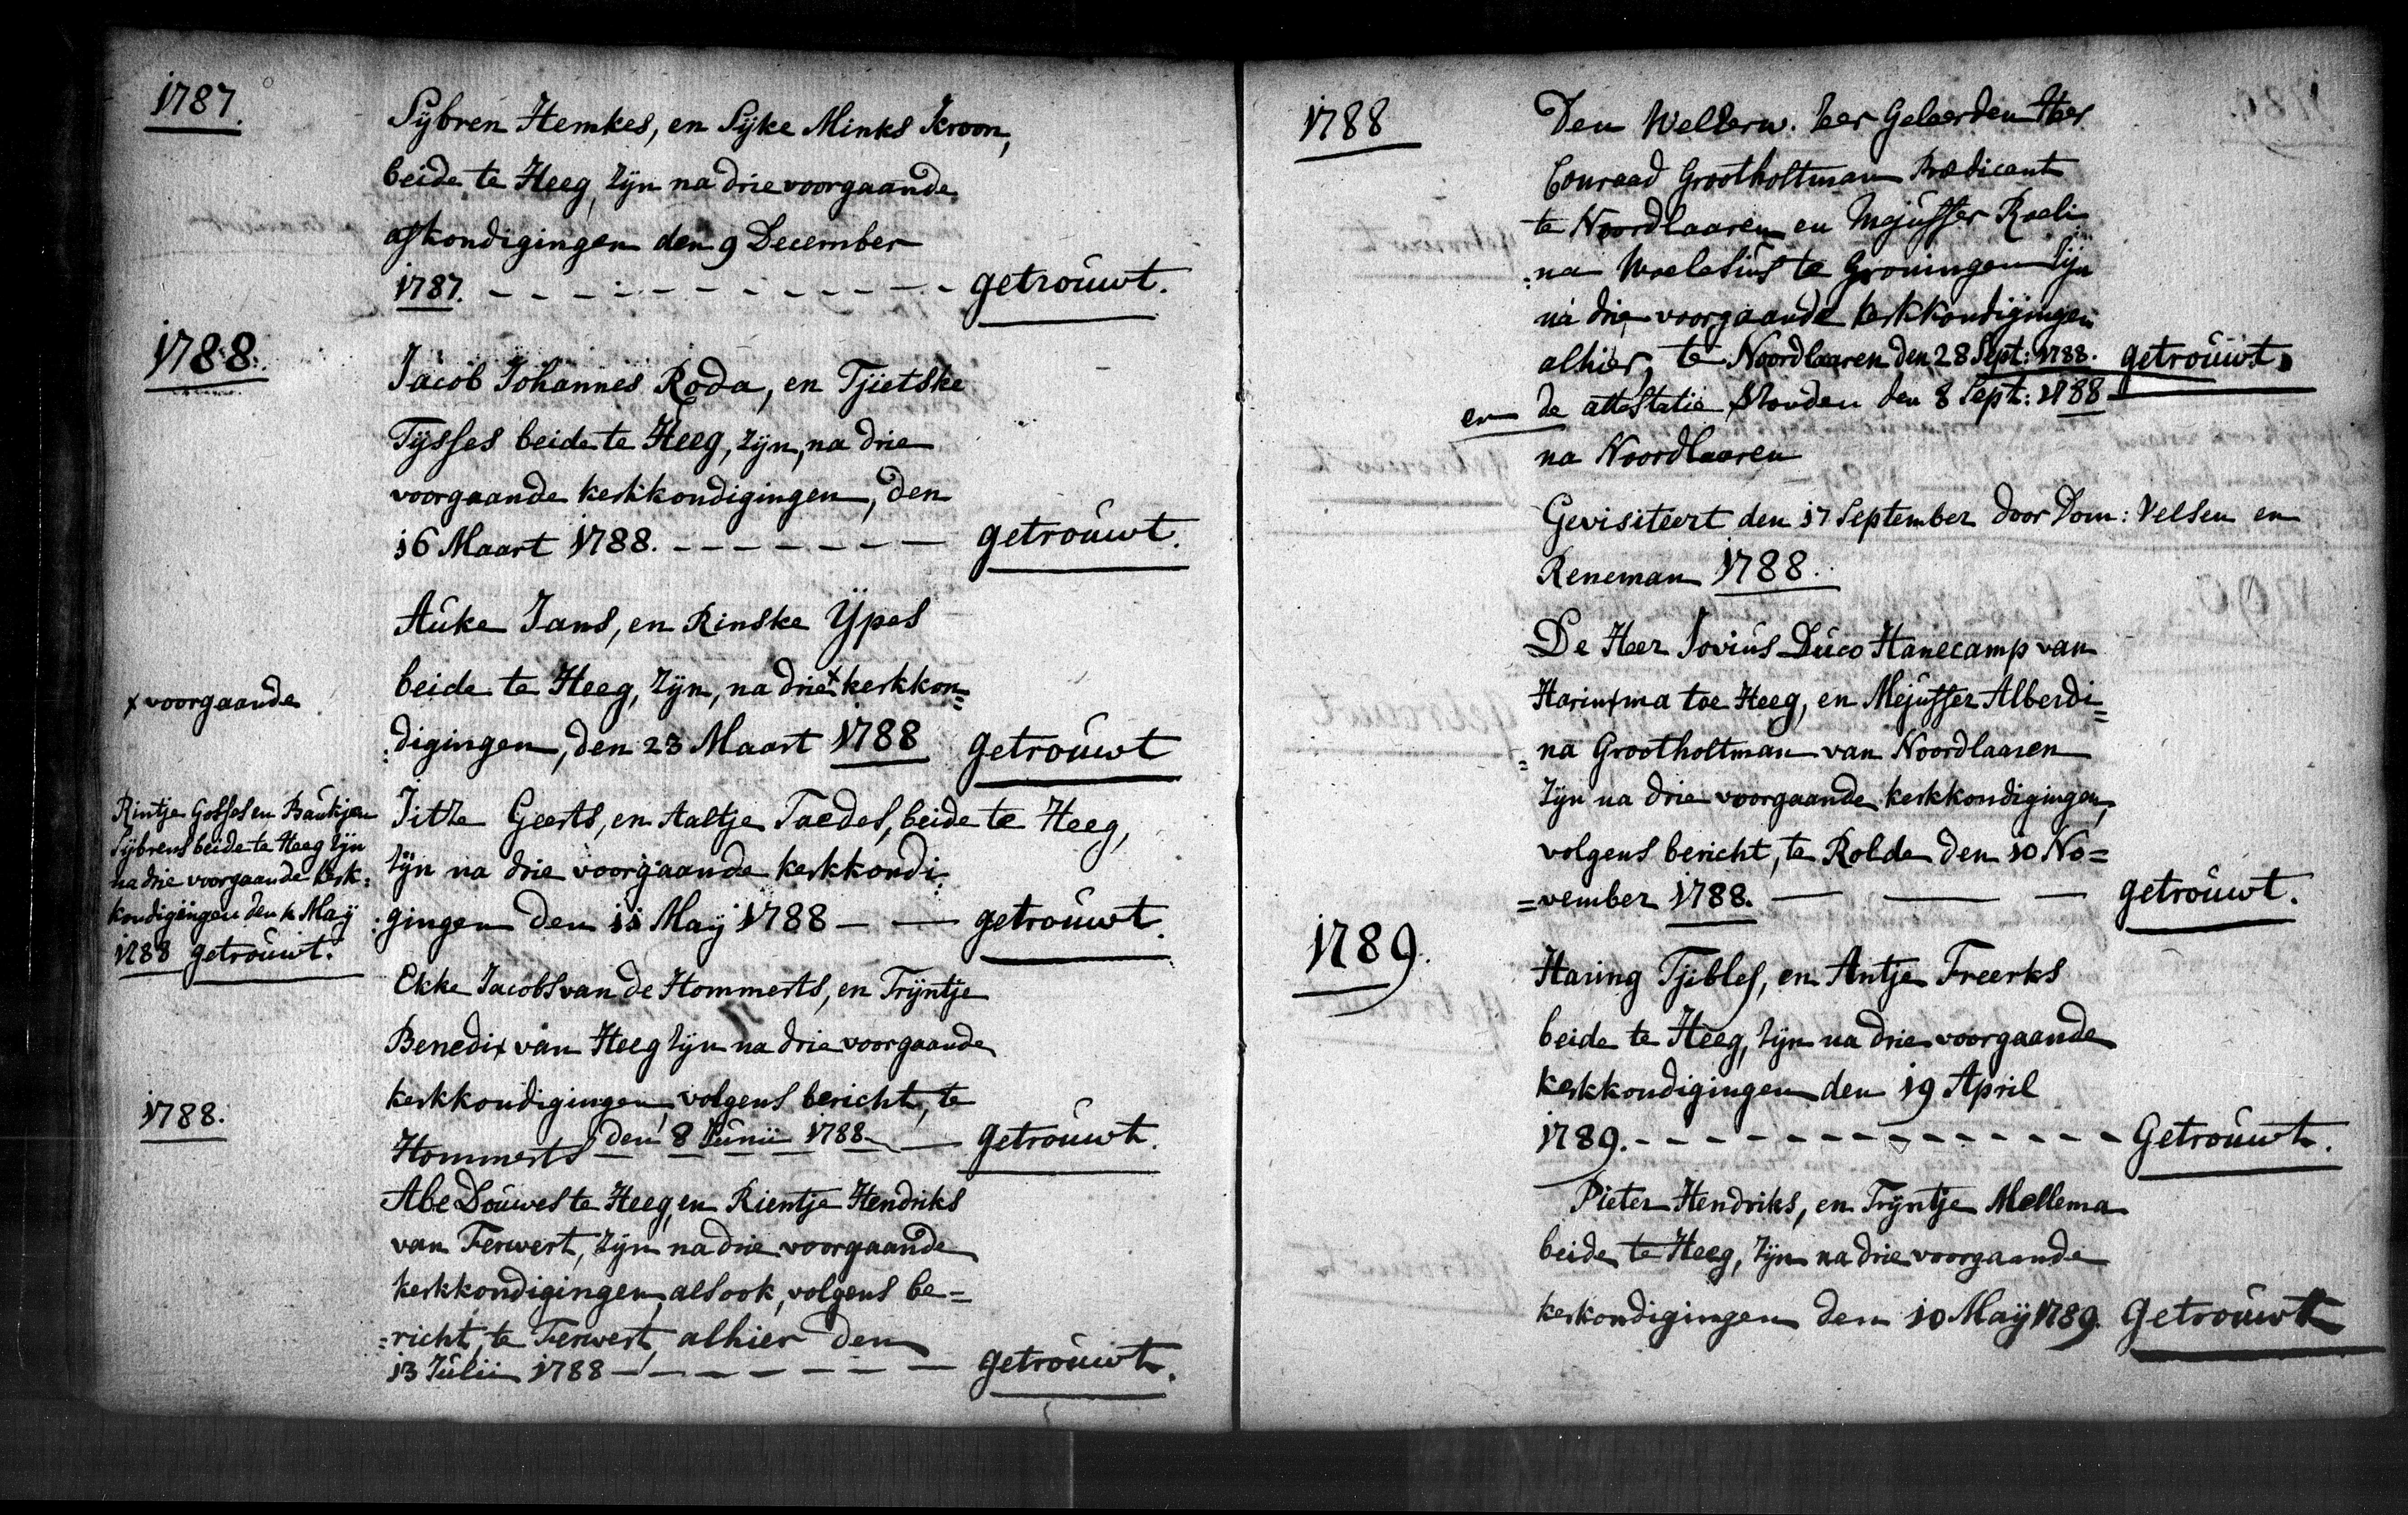 1787.
Sÿbren Hemkes, en Sÿke Minks Kroon,
beide te Heeg, zÿn na drie voorgaande
afkondigingen den 9 December
1787. - - - - - - - - - - - getrouwt.
1788.
Jacob Johannes Roda, en Tjietske
Tÿsses beide te Heeg, zÿn, na drie
voorgaande kerkkondigingen, den
16 Maart 1788. - - - - - - - getrouwt.
Auke Jans, en Rinske Ypes
beide te Heeg, zÿn, na drie x kerkkon=
x voorgaande
:digingen, den 23 Maart 1788 getrouwt
Rintje Gosses en Baukjen
Sÿbrens beide te Heeg zÿn
na drie voorgaande kerk:
kondigingen den 4 Maÿ
1788 getrouwt.
Jitze Geerts, en Aaltje Taedes, beide te Heeg,
zÿn na drie voorgaande kerkkondi:
:gingen den 11 Maÿ 1788 - - getrouwt.
Ekke Jacobs van de Hommerts, en Trÿntje
Benedix van Heeg zÿn na drie voorgaande
kerkkondigingen, volgens bericht, te
1788.
Hommerts den 8 Junii 1788 - getrouwt.
Abe Douwes te Heeg, en Rientje Hendriks
van Ferwert, zÿn na drie voorgaande
kerkkondigingen, als ook, volgens be=
:richt, te Ferwert, alhier den
13 Julii 1788 - - - - - - - getrouwt.
1788
Den WelEerw. zeer Geleerden Heer
Conraad Grootholtman Prædicant
te Noordlaaren en Mejuffer Roeli
:na Woelesius te Groningen zÿn
na drie voorgaande kerkkondigingen
alhier, te Noordlaaren den 28 Sept: 1788. getrouwt.
en de attestatie Sonden den 8 Sept: 1788
na Noordlaaren
Gevisiteert den 17 September door Dom: Velsen en
Reneman 1788.
De Heer Jovius Duco Hanecamp van
Harinxma toe Heeg, en Mejuffer Alberdi=
=na Grootholtman van Noordlaaren
zÿn na drie voorgaande kerkkondigingen,
volgens bericht, te Rolde den 10 No=
=vember 1788. - - - getrouwt.
1789.
Haring Tjibles, en Antje Freerks
beide te Heeg, zÿn na drie voorgaande
kerkkondigingen den 19 April
1789. - - - - - - - - - - - - - Getrouwt.
Pieter Hendriks, en Trÿntje Mellema
beide te Heeg, zÿn na drie voorgaande
kerkondigingen den 10 Maÿ 1789. Getrouwt